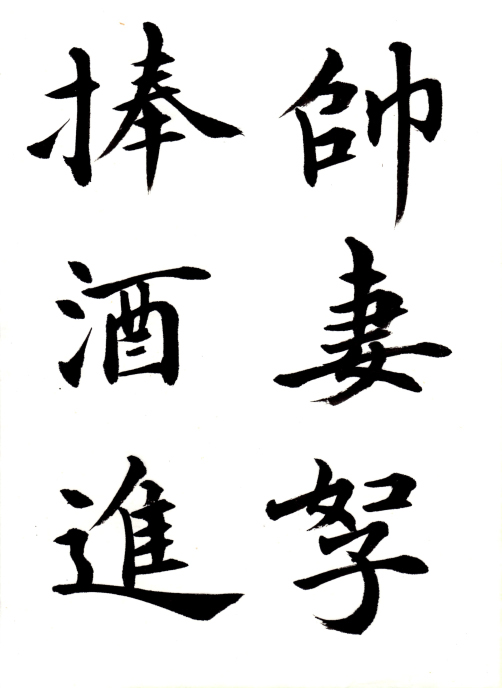 帥妻孥
捧酒進